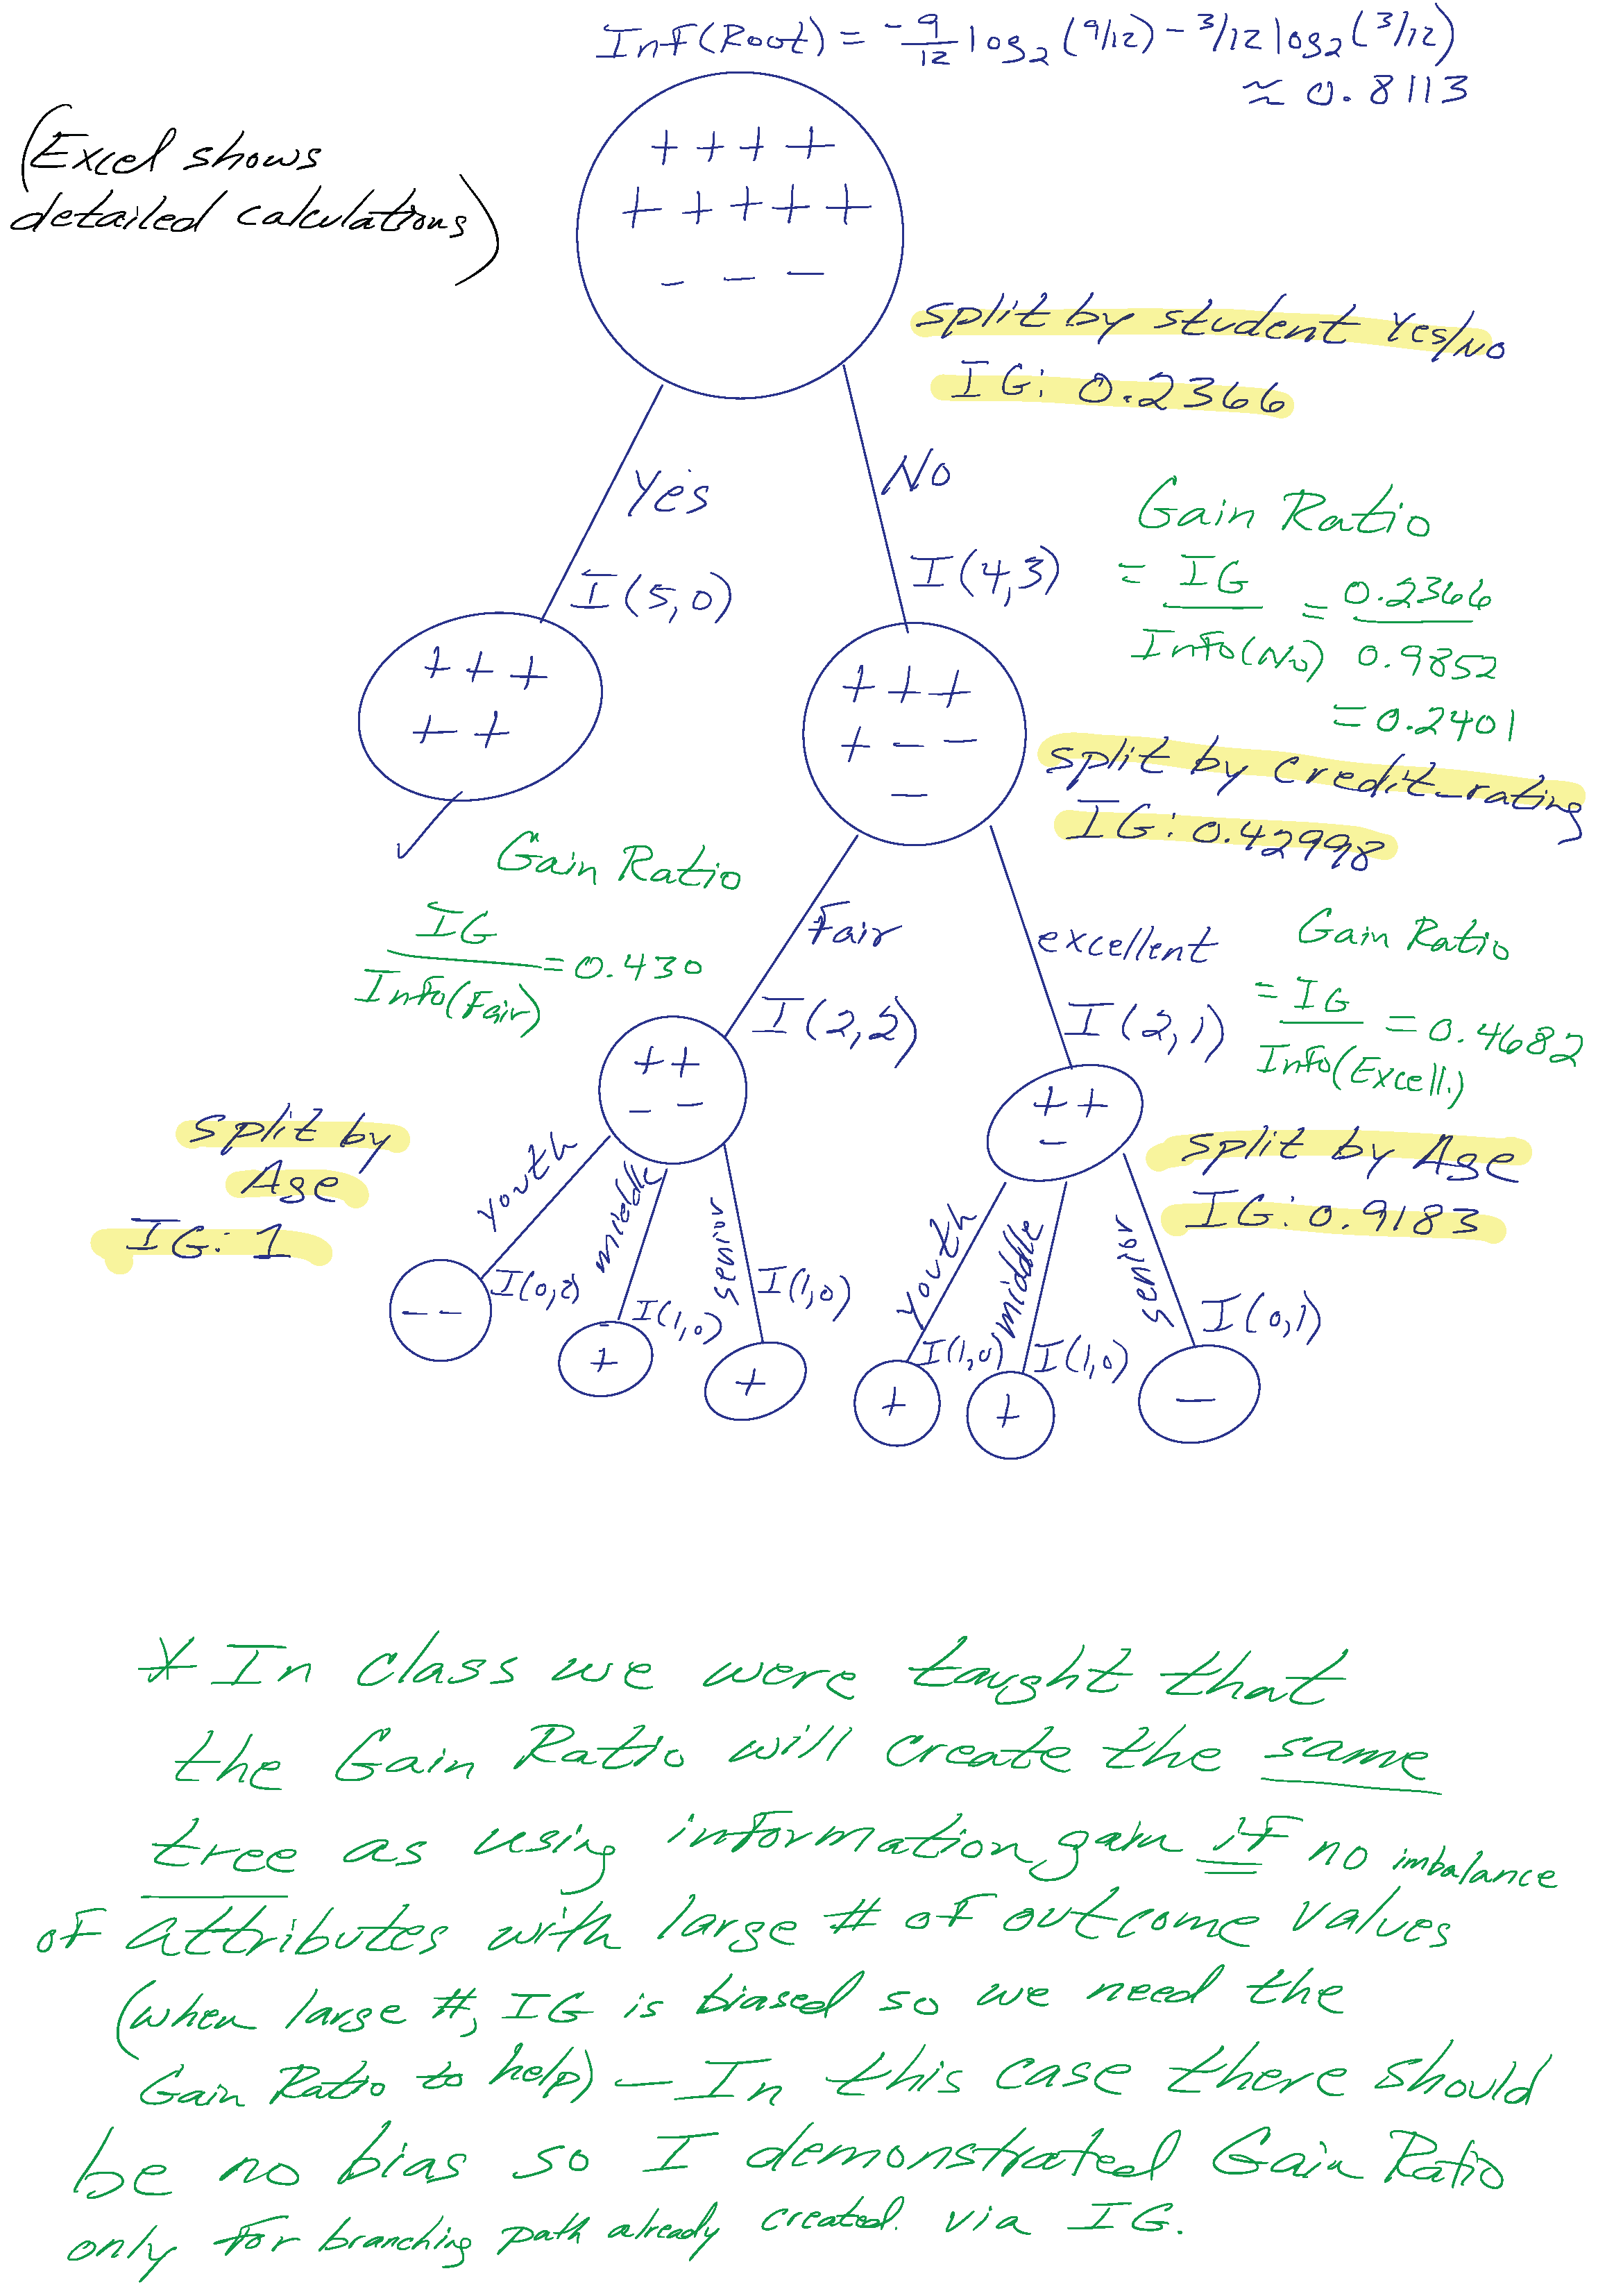 Inf(Root) = -9/12 log2 (9/12) - 3/12 log2 (3/12)
≈ 0.8113
(Excel shows
detailed calculations)
+ + + +
+ + + + +
- - -
split by student Yes/No
IG: 0.2366
Yes
No
I(5,0)
I(4,3)
Gain Ratio
= IG / Info(No) = 0.2366 / 0.9852
= 0.2401
+ + +
+ +
+ + +
+ - -
-
split by credit_rating
IG: 0.42998
Gain Ratio
IG / Info(Fair) = 0.430
Fair
excellent
I(2,2)
I(2,1)
Gain Ratio
= IG / Info(Excell.) = 0.4682
+ +
- -
+ +
-
split by
Age
IG: 1
split by Age
IG: 0.9183
youth
middle
senior
youth
middle
senior
I(0,2)
I(1,0)
I(1,0)
I(1,0)
I(1,0)
I(0,1)
- -
+
+
+
+
-
* In class we were taught that
the Gain Ratio will create the same
tree as using information gain if no imbalance
of attributes with large # of outcome values
(when large #, IG is biased so we need the
Gain Ratio to help) - In this case there should
be no bias so I demonstrated Gain Ratio
only for branching path already created. via IG.